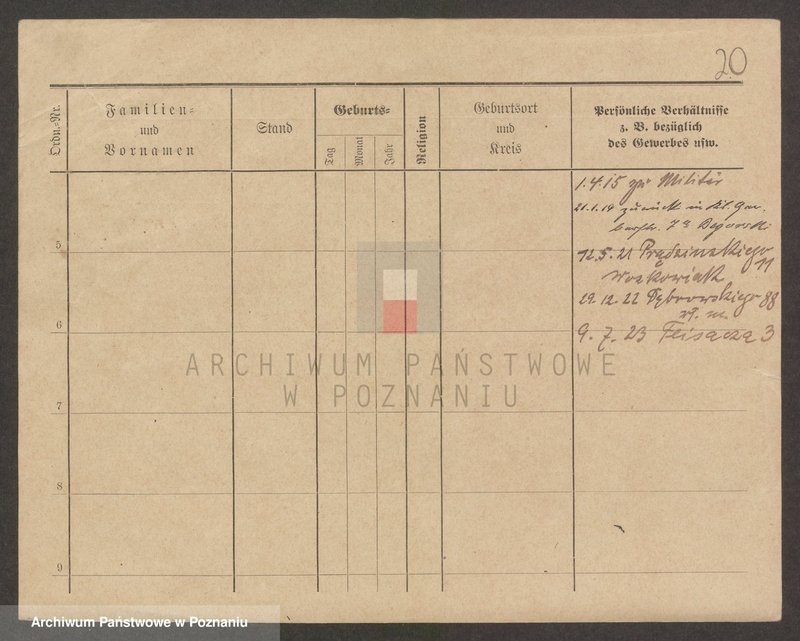 20
Ordn.-Nr.
Familien-
und
Vornamen
Stand
Geburts-
Tag
Monat
Jahr
Religion
Geburtsort
und
Kreis
Persönliche Verhältnisse
z. B. bezüglich
des Gewerbes usw.
1.4.15 zum Militär
zurück in
5
12.5.21 Prądzinskiego
11
Woskowiak
29.12.22 Dąbrowskiego 88
6
9.7.23 3
ARCHIWUM PAŃSTWOWE
W POZNANIU
7
8
9
Archiwum Państwowe w Poznaniu